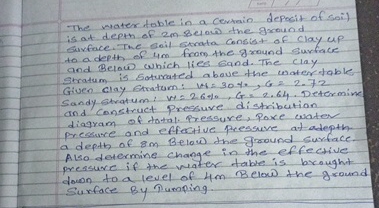 The water table in a certain deposit of soil
is at depth of 2m Below the ground
Surface. The soil strata consist of clay up
to a depth of 4m from the ground surface
and Below which lies sand. The clay
Stratum is Saturated above the water table
Given clay stratum: W = 30%, G = 2.72
Sandy stratum: W = 26%, G = 2.64. Determine
and construct pressure distribution
diagram of total pressure, Pore water
pressure and effective pressure at depth
a depth of 8m Below the ground surface.
Also determine change in the effective
pressure if the water table is brought
down to a level of 4m Below the ground
Surface By Pumping.